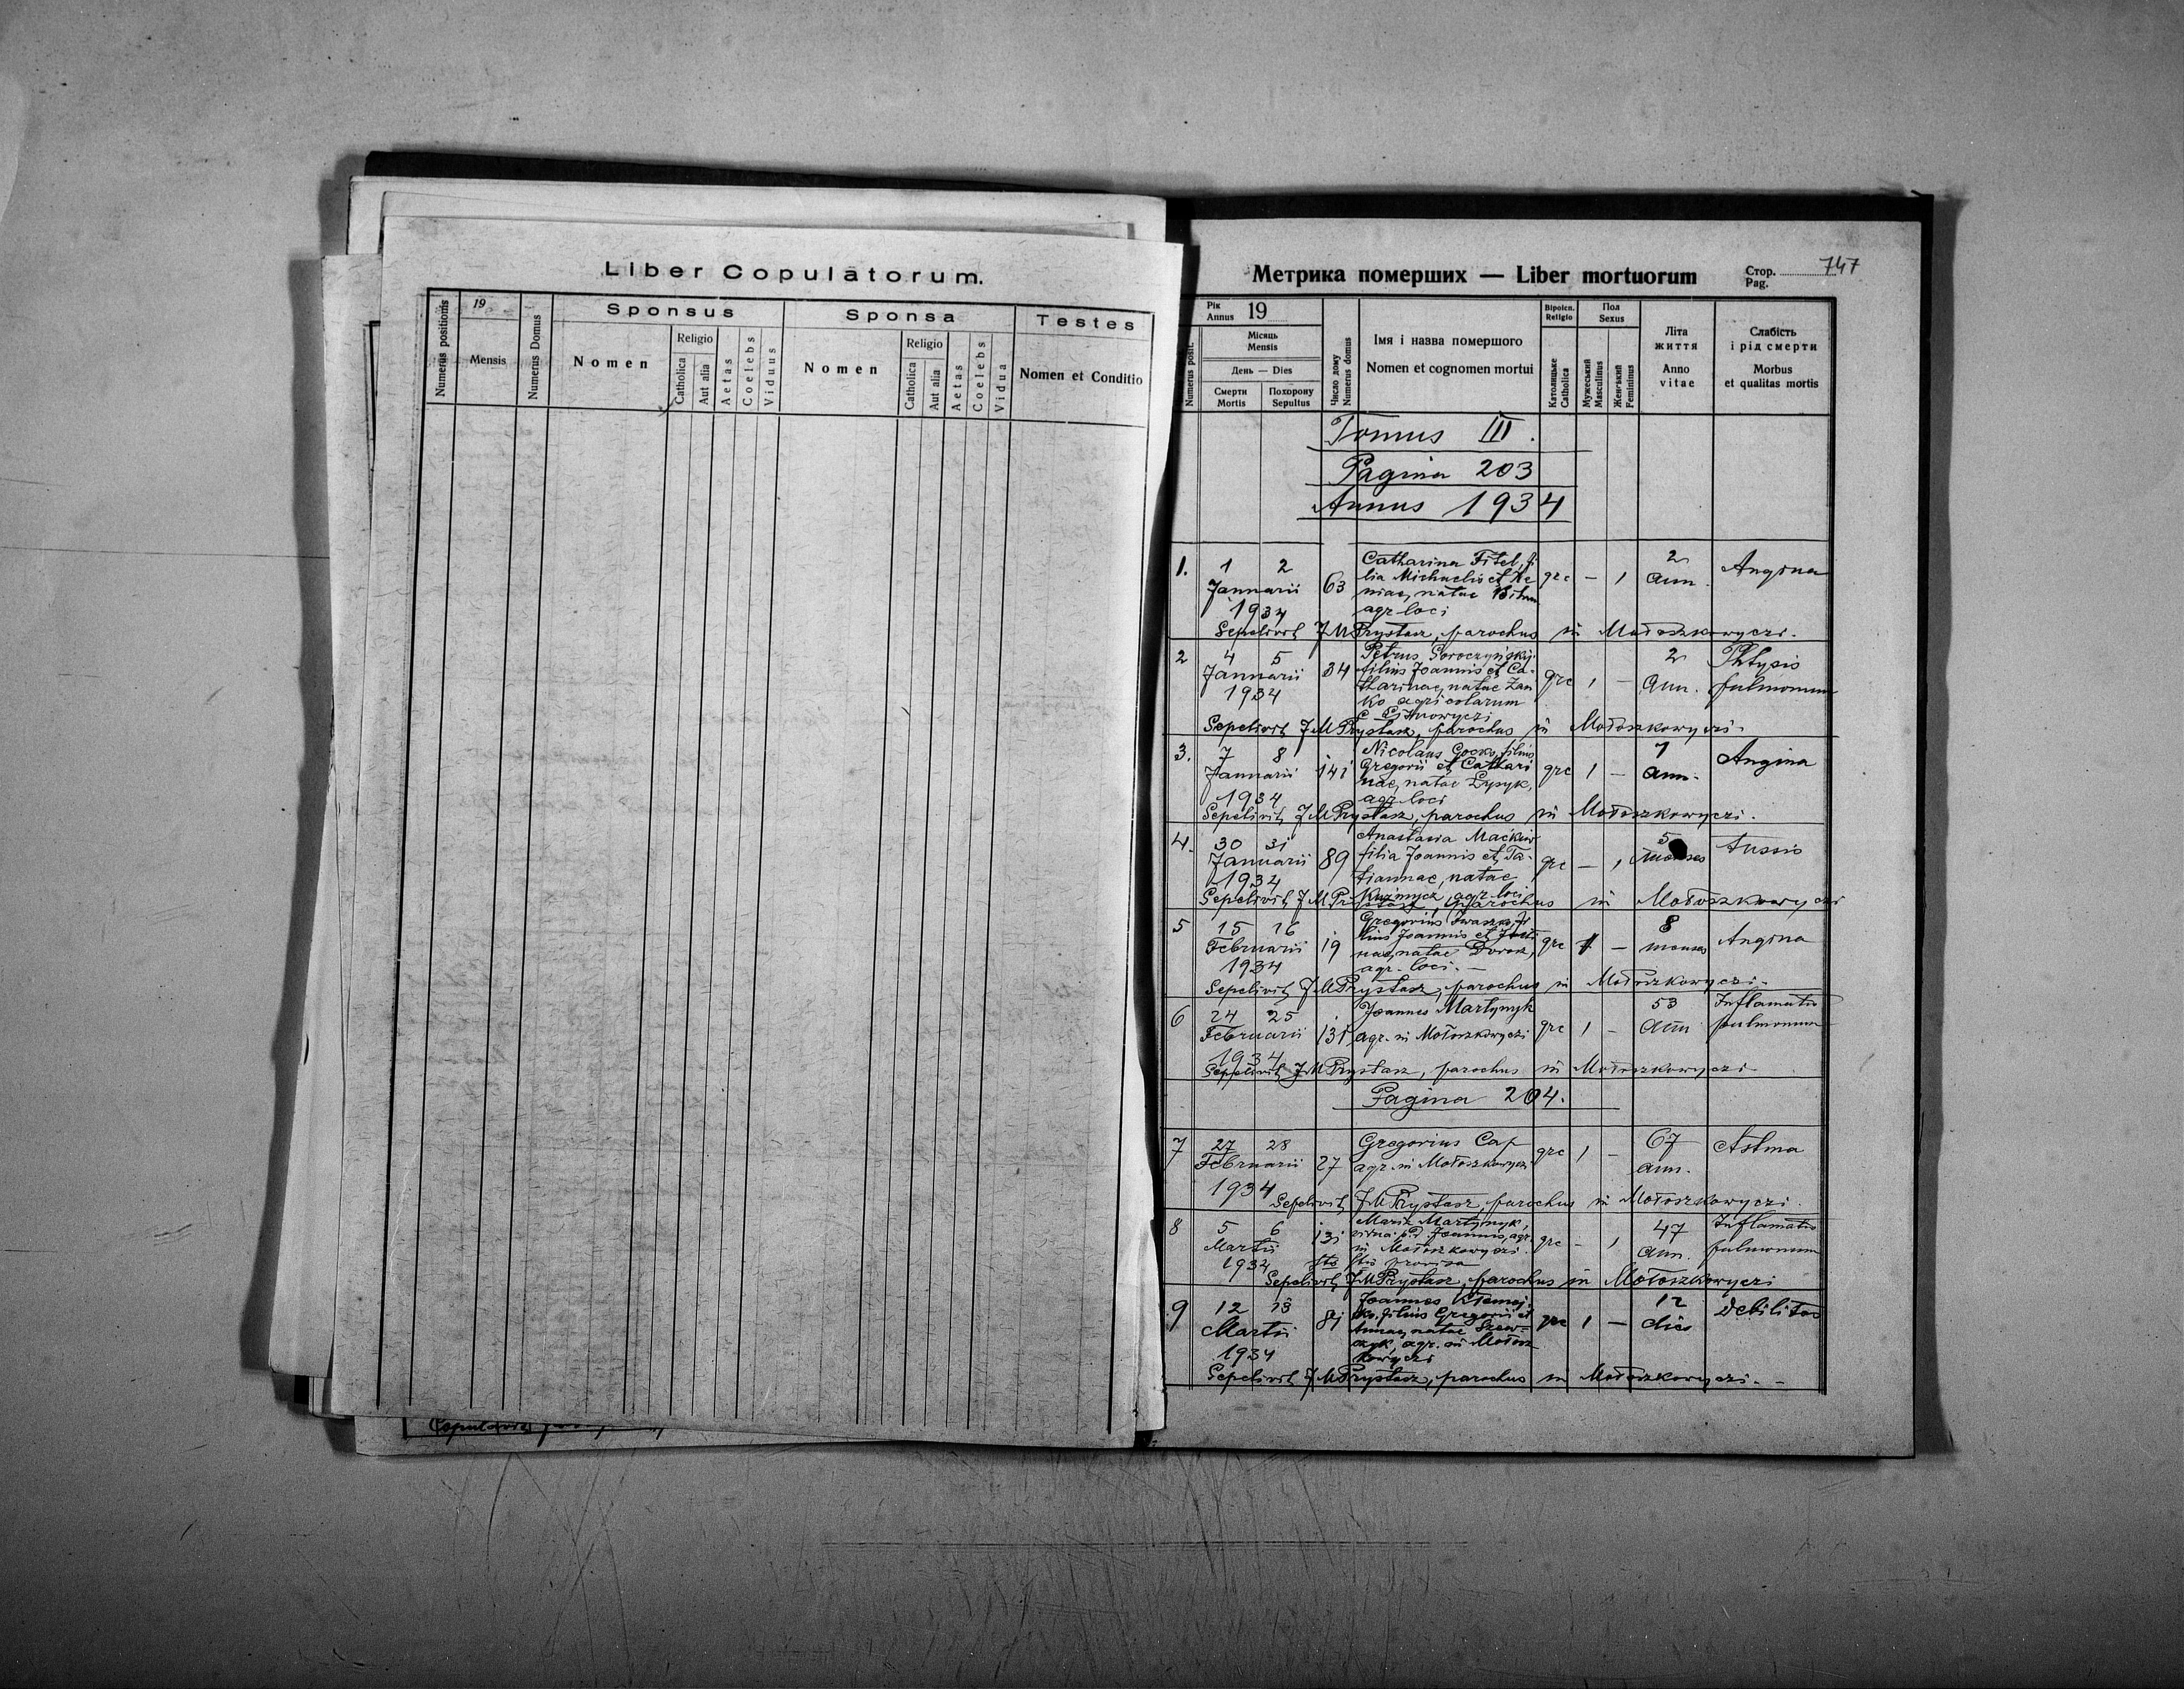 Liber Copulatorum.
Numerus positionis
19
Mensis
Numerus Domus
Sponsus
Nomen
Religio
Catholica
Aut alia
Aetas
Coelebs
Viduus
Sponsa
Nomen
Religio
Catholica
Aut alia
Aetas
Coelebs
Vidua
Testes
Nomen et Conditio
Метрика померших — Liber mortuorum
Стор.
Pag.
747
Numerus posit.
Рік
Annus 19
Місяць
Mensis
День — Dies
Смерти
Mortis
Похорону
Sepultus
Число дому
Numerus domus
Імя і назва помершого
Nomen et cognomen mortui
Віроісп.
Religio
Католицьке
Catholica
Пол
Sexus
Мужеський
Masculinus
Женський
Femininus
Літа
життя
Anno
vitae
Слабість
і рід смерти
Morbus
et qualitas mortis
Tomus III.
Pagina 203
Annus 1934
1. 1 2 Januarii 1934 63
Catharina Fitel, fi
lia Michaelis et Xe
niae, natae
agr. loci
grc — 1 2 ann. Angina
Sepelivit J M Prystasz, parochus in Mołoszkowyczi.
2 4 5 Januarii 1934 34
Petrus Soroczyńskyj
filius Joannis et Ca-
tharinae, natae Zan
ko agricolarum
grc 1 — 2 ann. Phtysis pulmonum
Sepelivit J M Prystasz, parochus in Mołoszkowyczi.
3. 7 8 Januarii 1934 141
Nicolaus Gocko, filius
Gregorii et Cathari
nae, natae Łysyk,
agr. loci
grc 1 — 1 ann. Angina
Sepelivit J M Prystasz, parochus in Mołoszkowyczi.
4. 30 31 Januarii 1934 89
Anastasia Maćkiw
filia Joannis et Ta-
tiannae, natae
Kuźmycz, agr. loci
grc — 1 5 menses Tussis
Sepelivit J M Prystasz, parochus in Mołoszkowyczi
5 15 16 Februarii 1934 19
Gregorius Iwaszko, fi
lius Joannis et Justi
nae, natae Dorosz,
agr. loci. —
grc 1 — 8 menses Angina
Sepelivit J M Prystasz, parochus in Mołoszkowyczi.
6 24 25 Februarii 1934 131
Joannes Martynyk
agr. in Mołoszkowyczi
grc 1 — 53 ann Inflamatio pulmonum
Sepelivit J M Prystasz, parochus in Mołoszkowyczi
Pagina 204.
7 27 28 Februarii 1934 27
Gregorius Cap
agr. in Mołoszkowyczi
grc 1 — 67 ann. Astma
Sepelivit J M Prystasz, parochus in Mołoszkowyczi.
8 5 6 Martii 1934 131
Maria Martynyk,
vidua p. d. Joannis, agr.
in Mołoszkowyczi.
provisa
grc — 1 47 ann. Inflamatio pulmonum
Sepelivit J M Prystasz, parochus in Mołoszkowyczi
9 12 13 Martii 1934 81
Joannes Klemej
ko, filius Gregorii et
Annae, natae Szew-
czyk, agr. in Mołosz
kowyczi
grc 1 — 12 dies Debilitas
Sepelivit J M Prystasz, parochus in Mołoszkowyczi. -